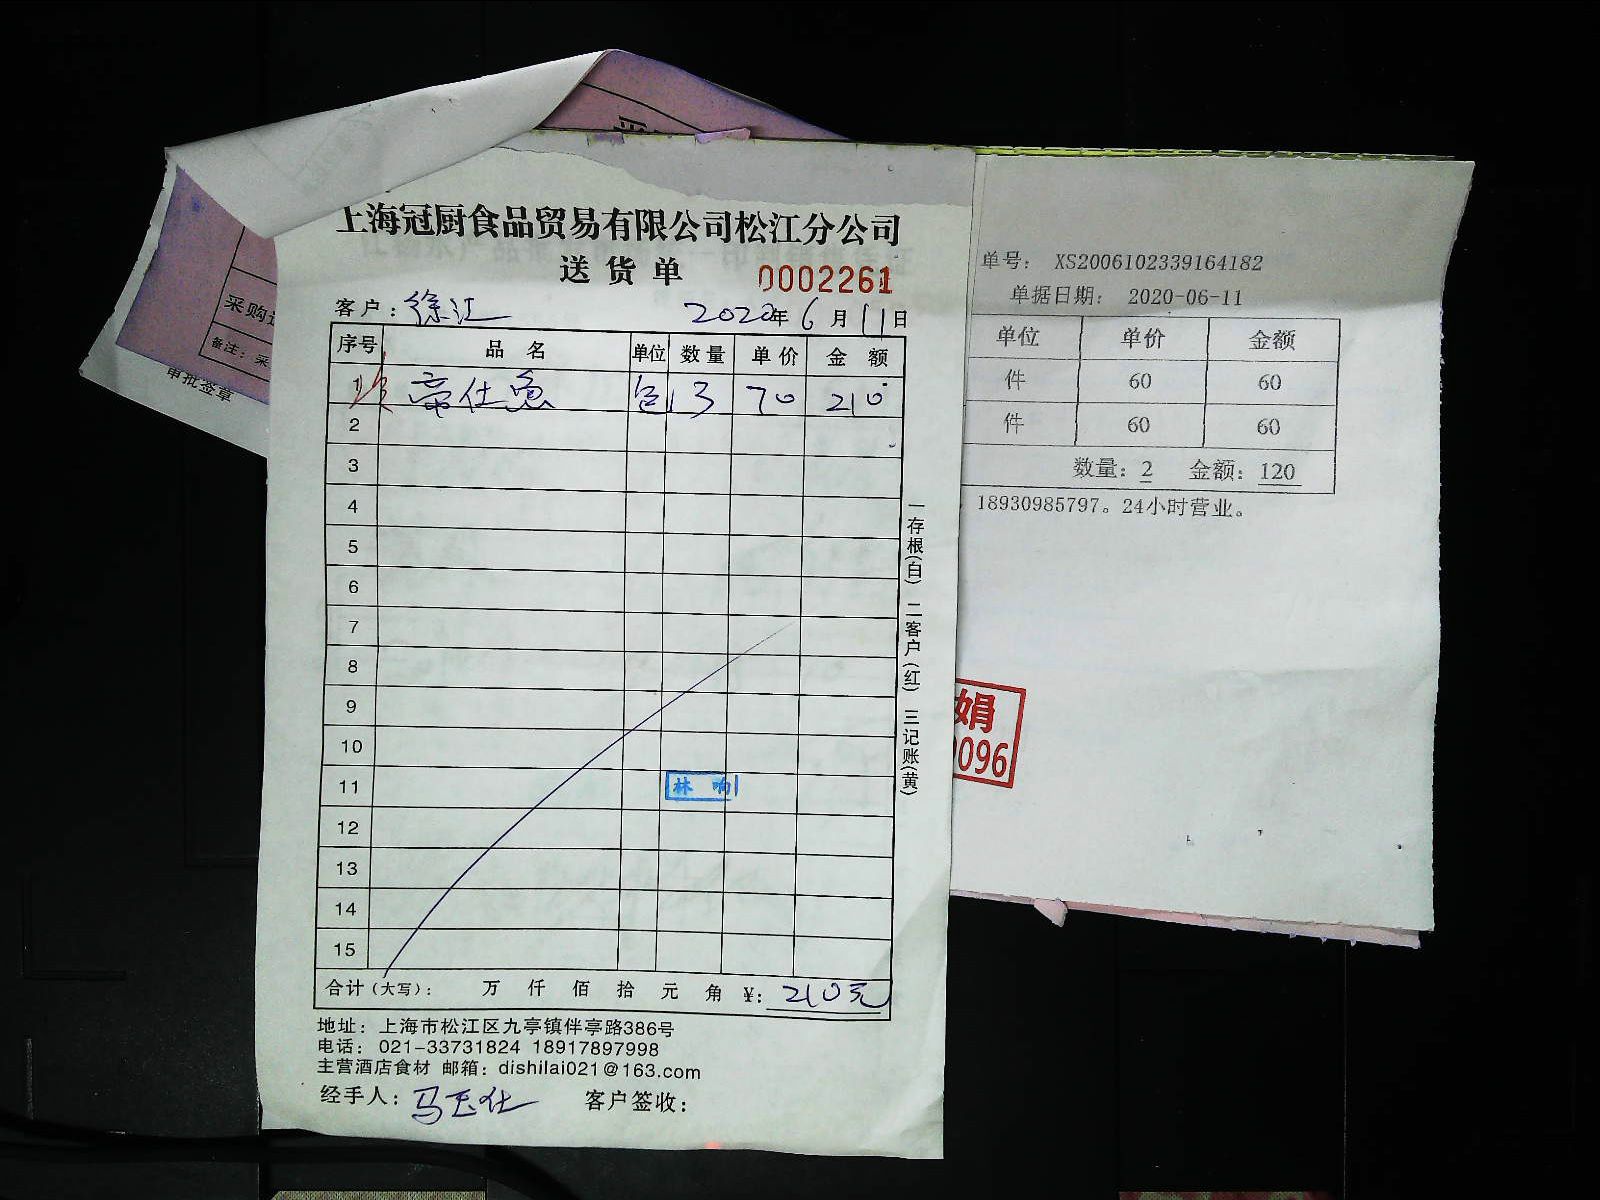 上海冠厨食品贸易有限公司松江分公司
送货单 0002261
客户：徐江 2020年6月11日
序号 品名 单位 数量 单价 金额
1 帝仕鱼 包 3 70 210
2
3
4
5
6
7
8
9
10
11 林
12
13
14
15
合计（大写）： 万 仟 佰 拾 元 角 ¥：210元
地址：上海市松江区九亭镇伴亭路386号
电话：021-33731824 18917897998
主营酒店食材 邮箱：dishilai021@163.com
经手人： 客户签收：
一存根(白) 二客户(红) 三记账(黄)
单号： XS2006102339164182
单据日期： 2020-06-11
单位 单价 金额
件 60 60
件 60 60
数量：2 金额：120
18930985797。24小时营业。
娟
0096
采购
备注：采
审批签章